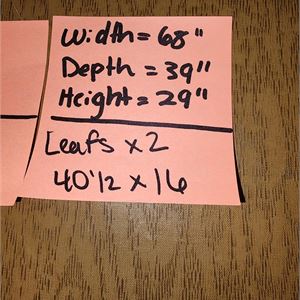 Width = 68"
Depth = 39"
Height = 29"
Leafs x 2
40 1/2 x 16